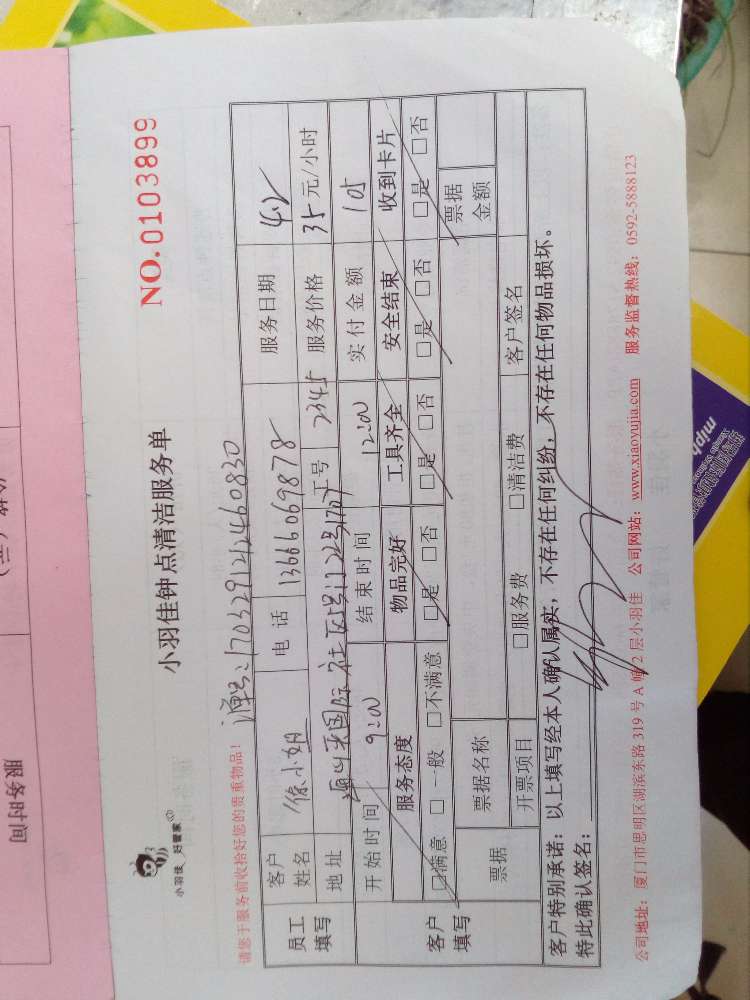 小羽佳 好管家
小羽佳钟点清洁服务单
NO.0103899
请您于服务前收拾好您的贵重物品!
单号:170329124246 0830
员工填写
客户姓名 徐小姐 电话 13666069878 服务日期 4.2
地址 国际社区 1707 工号 2345 服务价格 35元/小时
开始时间 9:00 结束时间 12:00 实付金额 105
客户填写
服务态度 物品完好 工具齐全 安全结束 收到卡片
□满意 □一般 □不满意 □是 □否 □是 □否 □是 □否 □是 □否
票据 票据名称 票据金额
开票项目 □服务费 □清洁费 客户签名
客户特别承诺:以上填写经本人确认属实,不存在任何纠纷,不存在任何物品损坏。
特此确认签名:
公司地址:厦门市思明区湖滨东路319号A幢2层小羽佳 公司网站:www.xiaoyujia.com 服务监督热线:0592-5888123
服务时间
miph